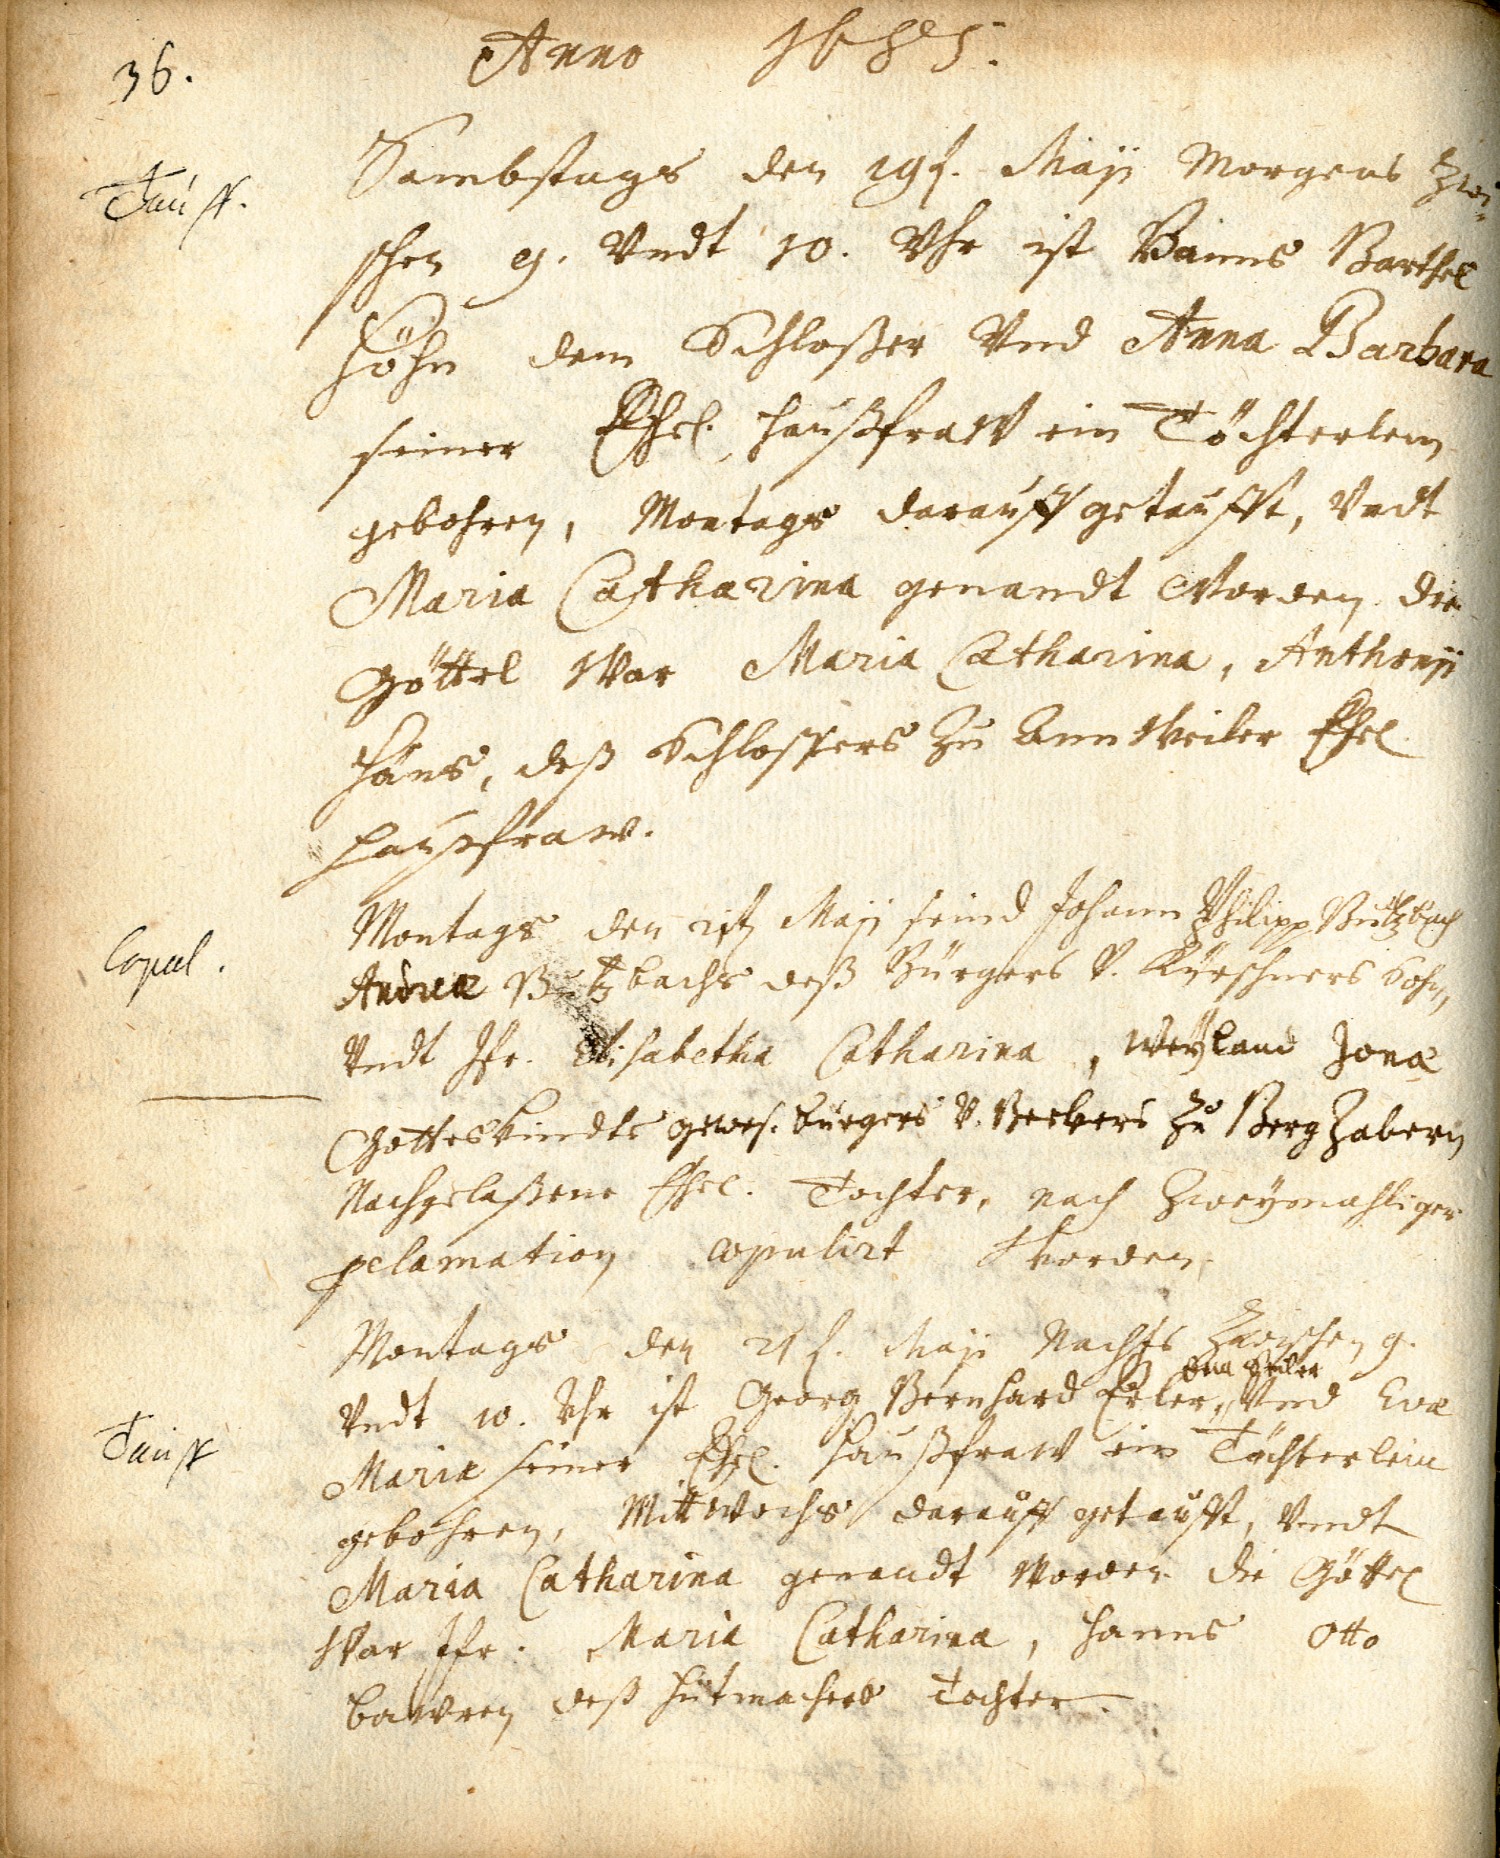 36.
Anno 1685.
Tauff.
Sambstags den 19t. Maÿ Morgens zwi-
schen 9. Vndt 10. Vhr ist Barthel
Höhn dem Schloßer Vnd Anna Barbara
seiner Ehel. haußfraw ein Töchterlein
gebohren, Montags darauff getaufft, Vndt
Maria Catharina genandt Worden, die
Göttel War Maria Catharina, Anthonÿ
Häns, deß Schlossers zu Annweiler Ehel
haußfraw.
Copul.
Montags den 21t Maÿ seind Johann Philipp Butzbach
Andreæ Butzbachs deß Bürgers V. Kürschners Sohn,
Vndt Jfr. Elisabetha Catharina, Weÿland Jonæ
Gotteskindts gewes. burgers V. Beckers zu Berg Zabern
Nachgelaßene Ehel. Tochter, nach Zweÿmahliger
pclamation copulirt Worden.
Tauff
Montags den 21t. Maÿ Nachts Zwischen 9.
Vndt 10. Vhr ist Georg Bernhard Erler, Vnd Eva
Maria seiner Ehel. haußfraw ein Töchterlein
gebohren, Mittwochs darauff getaufft, Vndt
Maria Catharina genandt Worden die Göttel
War Jfr. Maria Catharina, Hanns Otto
bawren deß Hutmachers Tochter.